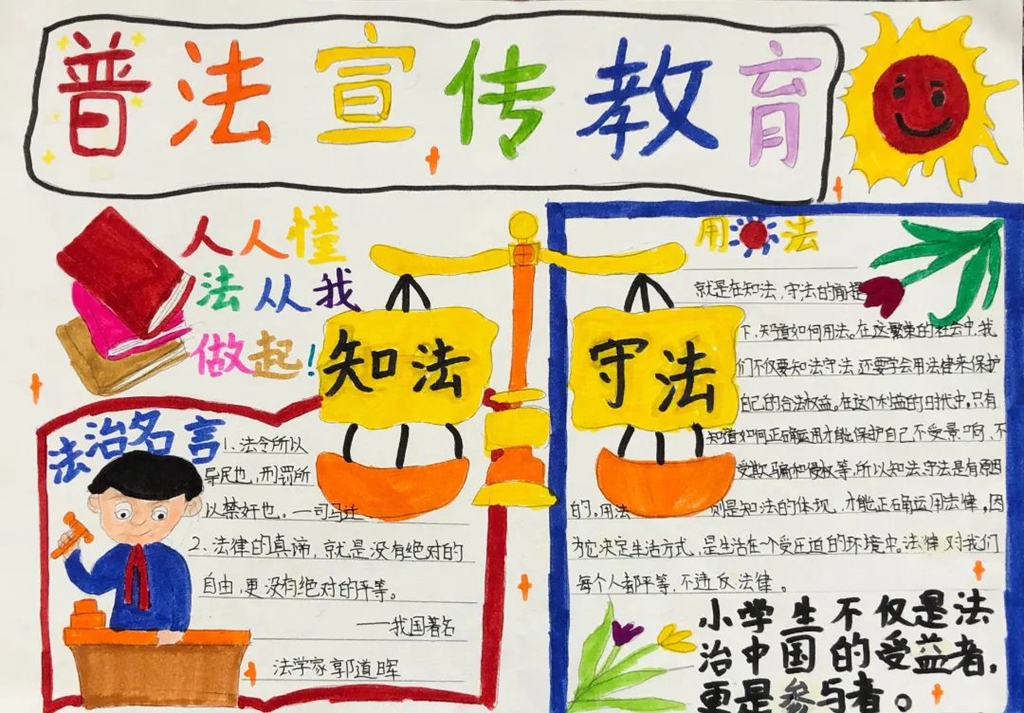 普法宣传教育
人人懂
法从我
做起!
知法
守法
法治名言
1、法令所以
导民也,刑罚所
以禁奸也。—司马迁
2、法律的真谛,就是没有绝对的
自由,更没有绝对的平等。
——我国著名
法学家郭道晖
用法
就是在知法,守法的前提
下,知道如何用法。在这繁荣的社会中,我
们不仅要知法守法,还要学会用法律来保护
自己的合法权益。在这个利益的时代中,只有
知道如何正确运用才能保护自己不受影响、不
受欺骗和侵权等,所以知法,守法是有原因
的。用法 则是知法的体现,才能正确运用法律,因
为它决定生活方式,是生活在一个受压迫的环境中。法律对我们
每个人都平等,不违反法律。
小学生不仅是法
治中国的受益者,
更是参与者。